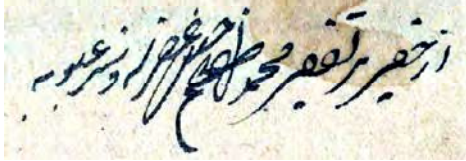 از حقیر پر تقصیر محمد صالح غفر له و ستر عیوبه